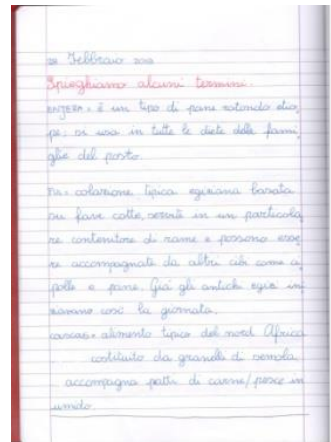 Febbraio
Spieghiamo alcuni termini.
è un tipo di pane rotondo etio
pe: si usa in tutte le diete delle fami
glie del posto.
colazione tipica egiziana basata
su fave cotte, servite in un particola
re contenitore di rame e possono esse
re accompagnate da altri cibi come
e pane. Già gli antichi egizi in
ziavano così la giornata.
alimento tipico del nord Africa
costituito da granelli di semola
accompagna piatti di carne/pesce in
umido